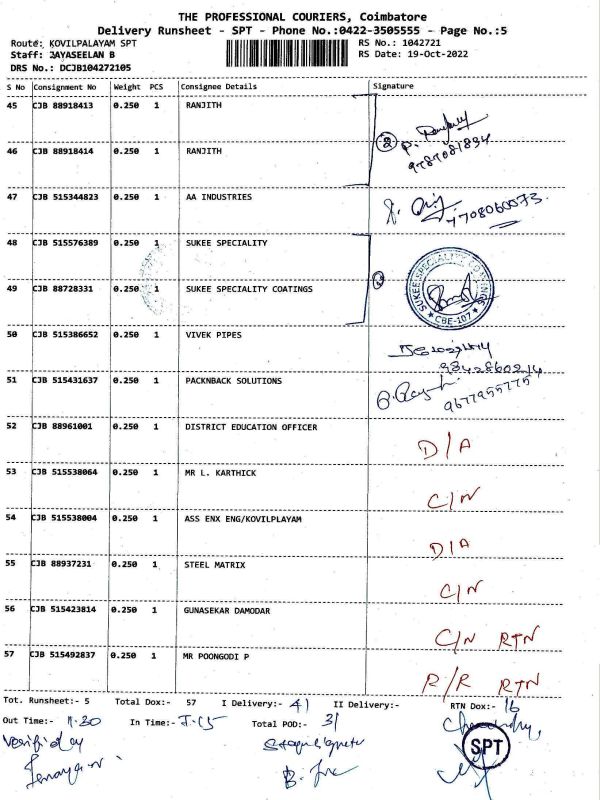 THE PROFESSIONAL COURIERS, Coimbatore
Delivery Runsheet - SPT - Phone No.:0422-3505555 - Page No.:5
Route: KOVILPALAYAM SPT
Staff: JAYASEELAN B
DRS No.: DCJB104272105
RS No.: 1042721
RS Date: 19-Oct-2022
S No Consignment No Weight PCS Consignee Details Signature
45 CJB 88918413 0.250 1 RANJITH
2
9787081834
46 CJB 88918414 0.250 1 RANJITH
47 CJB 515344823 0.250 1 AA INDUSTRIES
7708060073
48 CJB 515576389 0.250 1 SUKEE SPECIALITY
SUKEE SPECIALITY COATINGS
CBE-107
49 CJB 88728331 0.250 1 SUKEE SPECIALITY COATINGS
50 CJB 515386652 0.250 1 VIVEK PIPES
9342860214
51 CJB 515431637 0.250 1 PACKNBACK SOLUTIONS
9677955775
52 CJB 88961001 0.250 1 DISTRICT EDUCATION OFFICER
D/A
53 CJB 515538064 0.250 1 MR L. KARTHICK
C/N
54 CJB 515538004 0.250 1 ASS ENX ENG/KOVILPLAYAM
D/A
55 CJB 88937231 0.250 1 STEEL MATRIX
C/N
56 CJB 515423814 0.250 1 GUNASEKAR DAMODAR
C/N RTN
57 CJB 515492837 0.250 1 MR POONGODI P
R/R RTN
Tot. Runsheet:- 5 Total Dox:- 57 I Delivery:- 41 II Delivery:- RTN Dox:- 16
Out Time:- In Time:- Total POD:- 31
Verified by
SPT